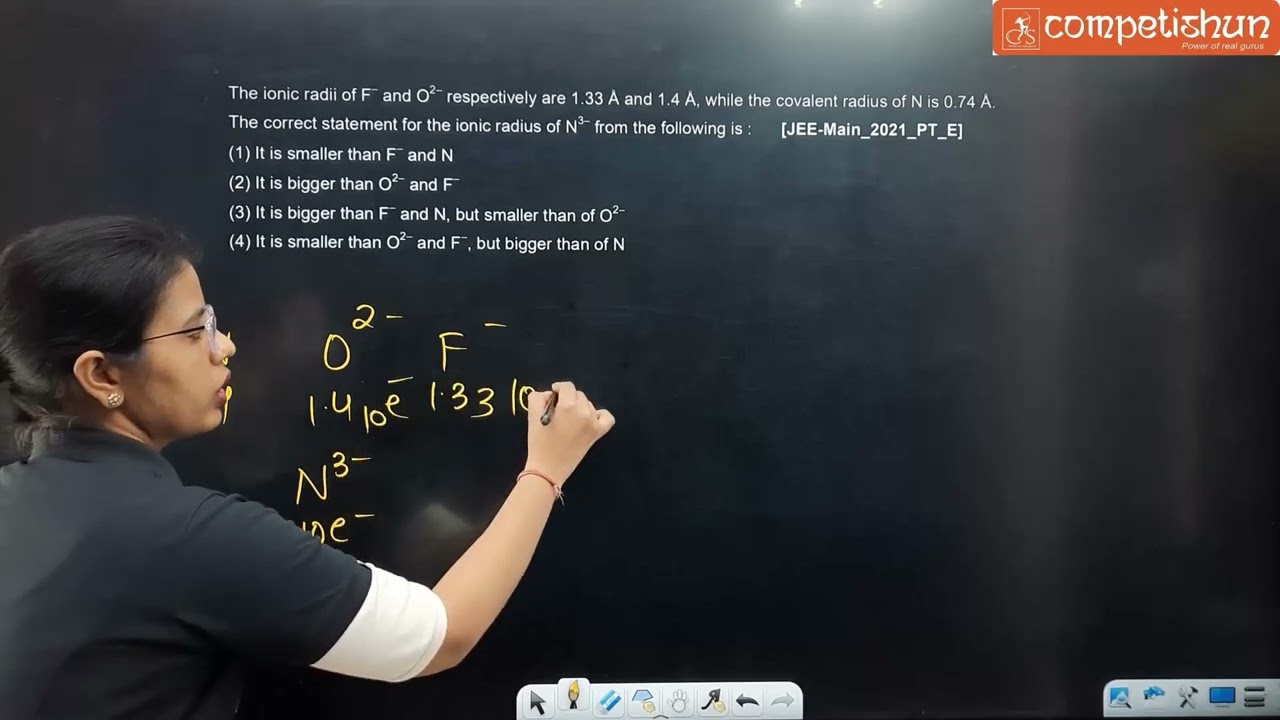 competishun
Power of real gurus
The ionic radii of F⁻ and O²⁻ respectively are 1.33 Å and 1.4 Å, while the covalent radius of N is 0.74 Å.
The correct statement for the ionic radius of N³⁻ from the following is : [JEE-Main_2021_PT_E]
(1) It is smaller than F⁻ and N
(2) It is bigger than O²⁻ and F⁻
(3) It is bigger than F⁻ and N, but smaller than of O²⁻
(4) It is smaller than O²⁻ and F⁻, but bigger than of N
O²⁻ F⁻
1.4 10e⁻ 1.33 10
N³⁻
10e⁻